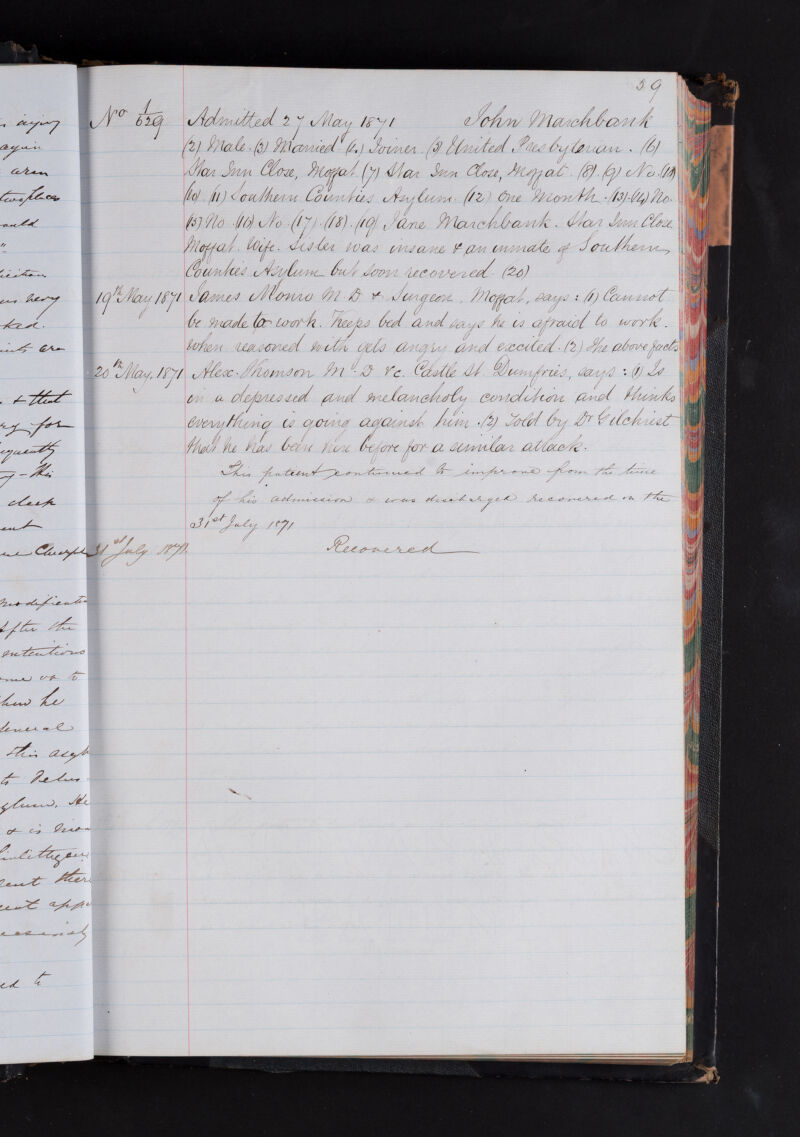 59
No 1/629 Admitted 27 May 1871 John Marchbank
(2) Male. (3) Married (4) Joiner (5) United Presbyterian. (6)
Star Inn Close, Moffat. (7) Star Inn Close, Moffat. (8) (9) No (10)
(10) (11) Southern Counties Asylum. (12) One Month. (13) (14) No.
(15) No (16) No (17) (18) (19) Jane Marchbank. Star Inn Close
Moffat. Wife. Sister was insane & an inmate of Southern
Counties Asylum but soon recovered. (20)
19th May 1871 James Monro M.D & Surgeon, Moffat, says: (1) Cannot
be made to work. Keeps bed and says he is afraid to work.
When reasoned with gets angry and excited. (2) The above facts
20th May. 1871 Alex. Thomson M.D &c. Castle St Dumfries, says: (1) Is
in a depressed and melancholy condition and thinks
everything is going against him. (2) Told by Dr Gilchrist
that he has been here before for a similar attack.
This patient continued to improve from the time
of his admission & was discharged recovered on the
31st July 1871
31st July 1871. Recovered
again
aren
two places
ould
very
ked.
are
& that
for
this
sleep
ent
modificatio
After the
intentions
on to
he
several
this asyl
to
He
& is
intelligen
ent there
ent
ed to